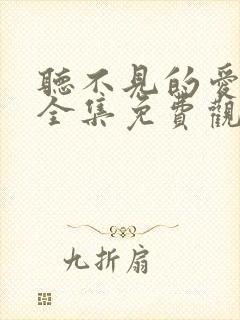 聽不見的愛
全集免費觀
九折扇